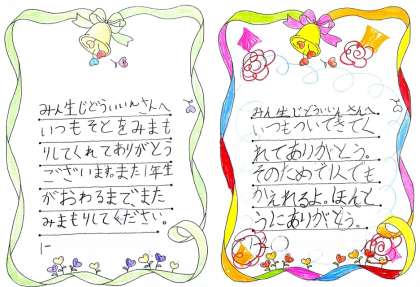 みん生じどういいんさんへ
いつもそとをみまも
りしてくれてありがとう
ございます。また1年生
がおわるまで、また
みまもりしてください。
1-
みん生じどういいんさんへ
いつもついてきてく
れてありがとう。
そのためで1人でも
かえれるよ。ほんと
うにありがとう。
1-